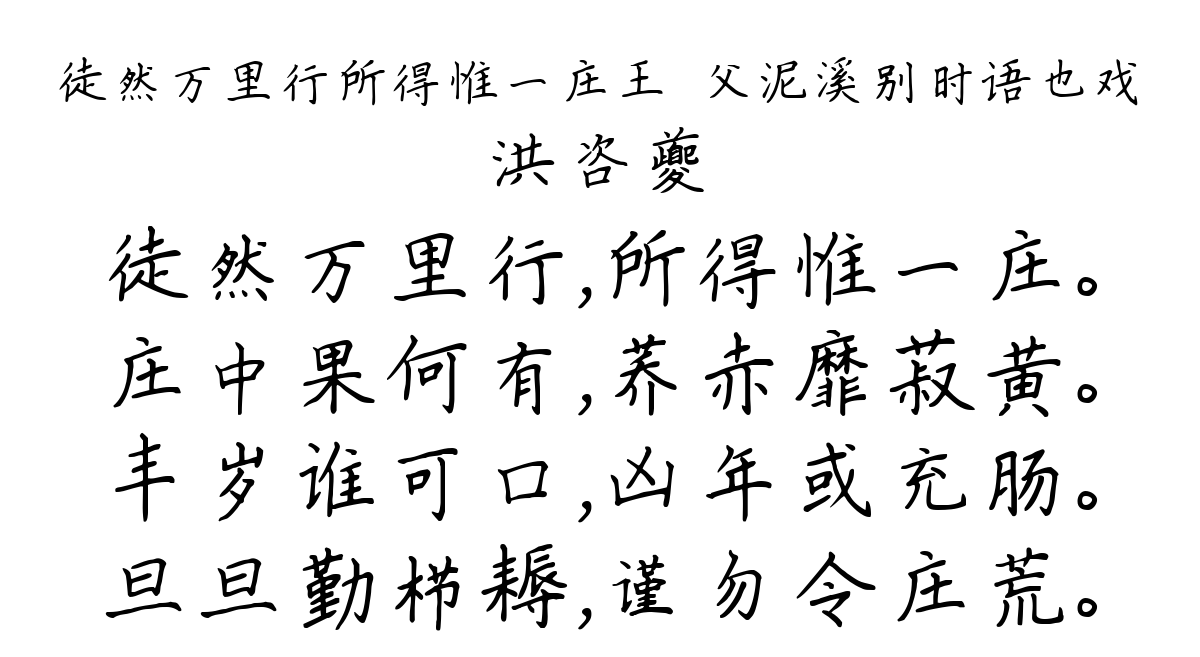 徒然万里行所得惟一庄王 父泥溪别时语也戏
洪咨夔
徒然万里行,所得惟一庄。
庄中果何有,荞赤靡菽黄。
丰岁谁可口,凶年或充肠。
旦旦勤栉耨,谨勿令庄荒。